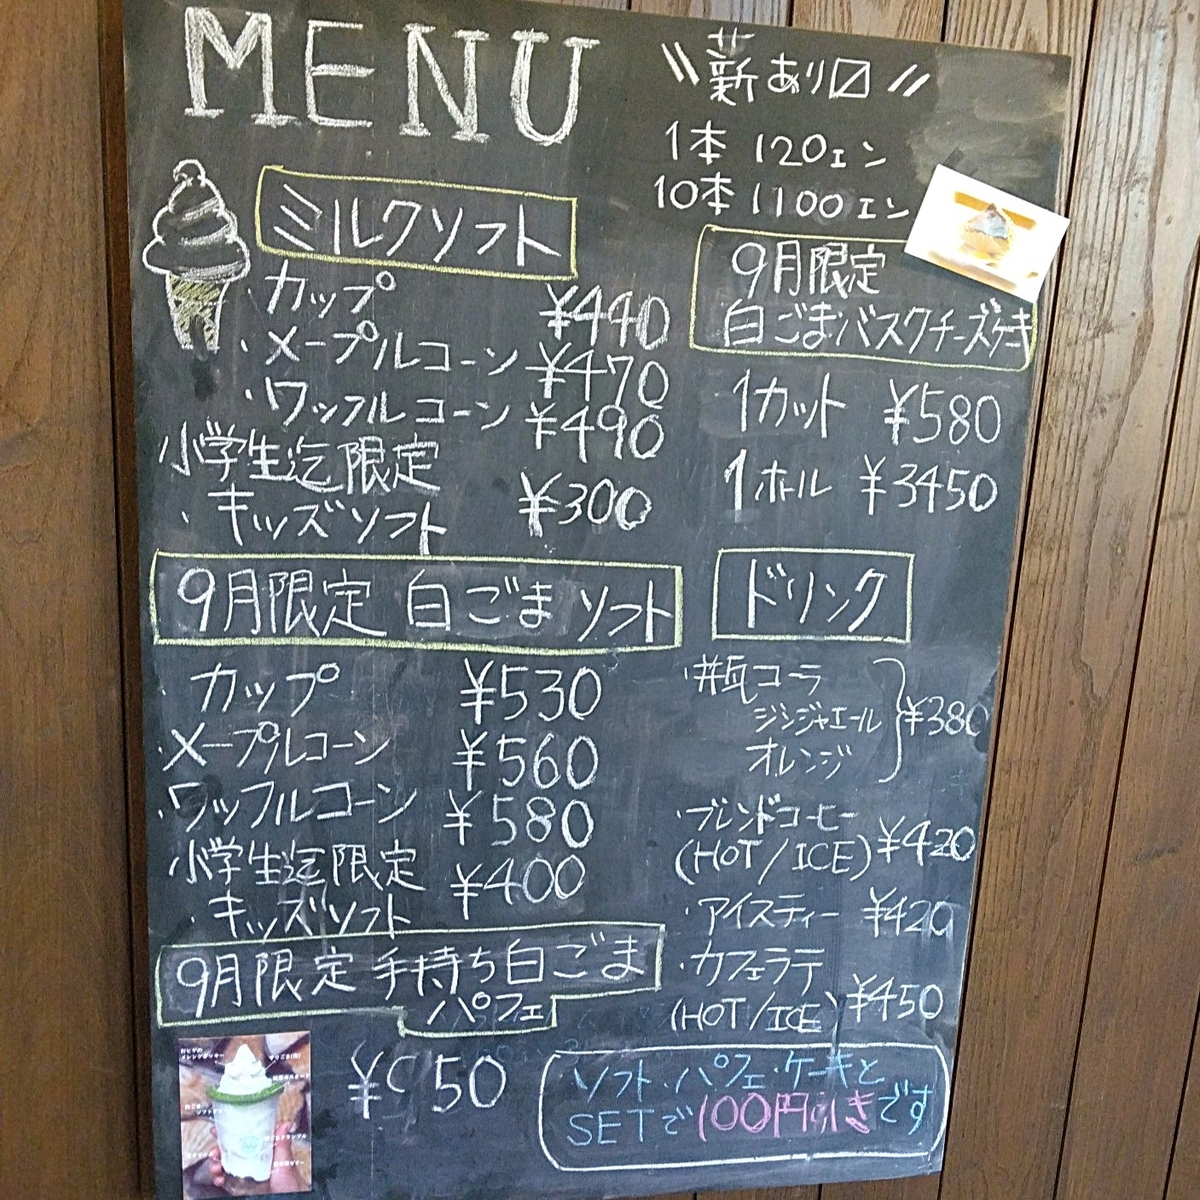 MENU
\\薪あり〼//
1本 120エン
10本 1100エン
ミルクソフト
・カップ ¥440
・メープルコーン ¥470
・ワッフルコーン ¥490
小学生迄限定
・キッズソフト ¥300
9月限定 白ごまソフト
カップ ¥530
・メープルコーン ¥560
・ワッフルコーン ¥580
小学生迄限定
・キッズソフト ¥400
9月限定 手持ち白ごま
パフェ
50
9月限定
白ごまバスクチーズケーキ
1カット ¥580
1ホール ¥3450
ドリンク
・瓶コーラ
ジンジャエール ¥380
オレンジ
・ブレンドコーヒー
(HOT/ICE) ¥420
・アイスティー ¥420
・カフェラテ
(HOT/ICE) ¥450
ソフト・パフェ・ケーキと
SETで100円引きです